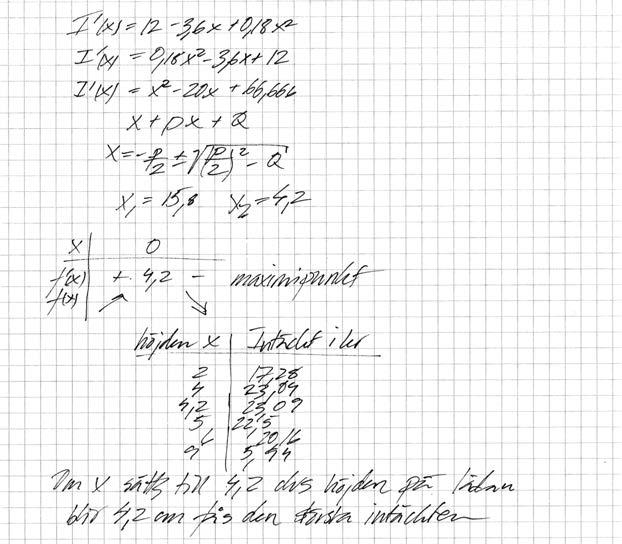 I'(x) = 12 - 3,6x + 0,18x²
I'(x) = 0,18x² - 3,6x + 12
I'(x) = x² - 20x + 66,666
x + px + Q
x = -p/2 ± √(p/2)² - Q
x₁ = 15,8 x₂ = 4,2
x | 0
f'(x) | + 4,2 - maximipunkt
f(x) | ↗ ↘
höjden x | Intäkt i kr
2 | 17,28
4 | 23,04
4,2 | 23,09
5 | 22,5
6 | 20,16
9 | 5,94
Om x sätts till 4,2 dvs höjden på lådan
blir 4,2 cm fås den största intäkten